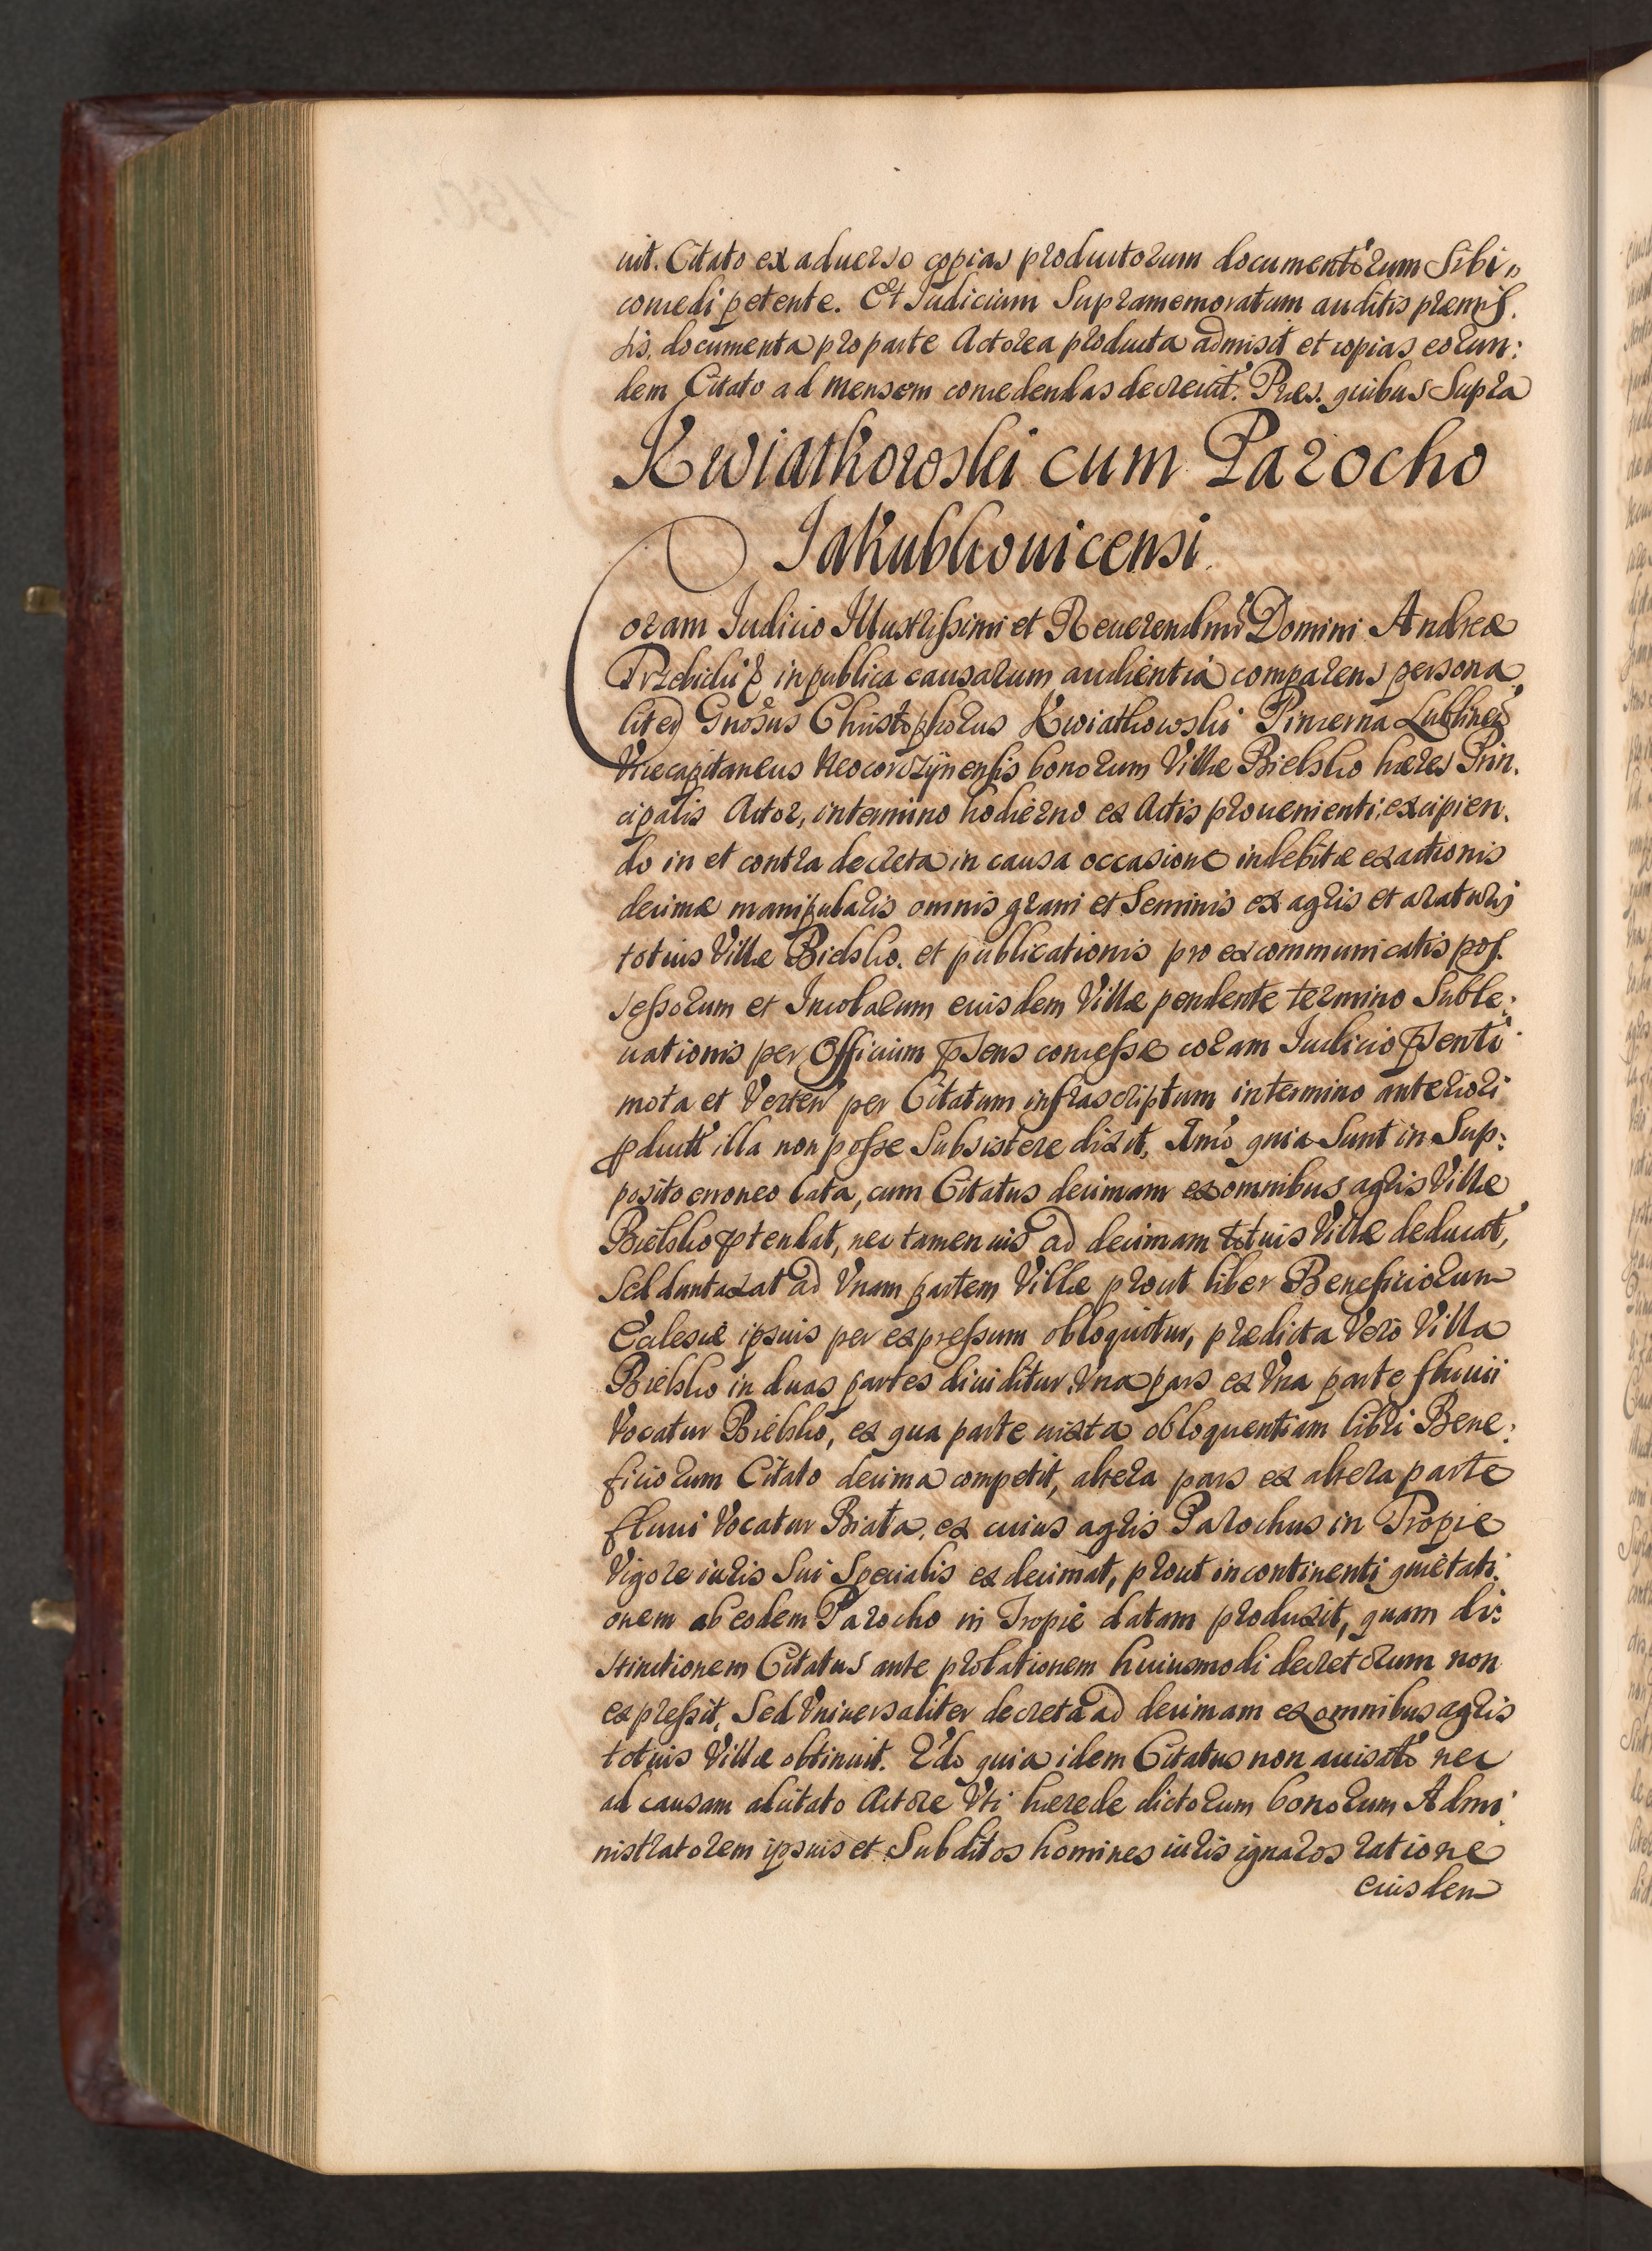 uit. Citato ex aduerso copias productorum documentorum Sibi
concedi petente. Et Judicium Supramemoratum auditis præmis.
sis, documenta pro parte Actorea producta admisit et copias eorun:
dem Citato ad mensem concedendas decreuit. Præs. quibus Supra
Kwiatkowski cum Parocho
Jakubkouicensi.
Coram Judicio Illustrissimi et Reuerendmi Domini Andreæ
Trzebicki in publica causarum audientia comparens persona
liter Gnosus Christophorus Kwiatkowski Pincerna Lublinen
Vicecapitaneus Neocorczynensis bonorum Villæ Bielsko hæres Prin.
cipalis Actor, in termino hodierno ex Actis proueniente, excipien.
do in et contra decreta in causa occasione indebitæ exactionis
decimæ manipularis omnis grani et Seminis ex agris et araturis
totius Villæ Bielsko. et publicationis pro excommunicatis pos.
sessorum et Incolarum eiusdem Villæ pendente termino Suble:
uationis per Officium psens concessæ coram Judicio psenti
mota et Verten per Citatum infrascriptum in termino anteriori
pduct illa non posse Subsistere dixit, Imo quia Sunt in Sup:
posito erroneo lata, cum Citatus decimam ex omnibus agris Villæ
Bielsko ptendat, nec tamen ius ad decimam totius Villæ deducat,
Sed duntaxat ad Vnam partem Villæ prout liber Beneficiorum
Ecclesiæ ipsius per expressum obloquitur, prædicta Vero Villa
Bielsko in duas partes diuiditur. Vna pars ex Vna parte fluuii
Vocatur Bielsko, ex qua parte iuxta obloquentiam libri Bene:
ficiorum Citato decima competit, altera pars ex altera parte
fluuii Vocatur Biała, ex cuius agris Parochus in Tropie
Vigore iuris Sui Specialis exdecimat, prout incontinenti quietati:
onem ab eodem Parocho in Tropie datam produxit, quam di:
stinctionem Citatus ante prolationem huiusmodi decretorum non
expressit, Sed Vniversaliter decreta ad decimam ex omnibus agris
totius Villæ obtinuit. 2do quia idem Citatus non auisato nec
ad causam adcitato Actore Vti hærede dictorum bonorum Admi:
nistratorem ipsius et Subditos homines iuris ignaros ratione
eiusdem